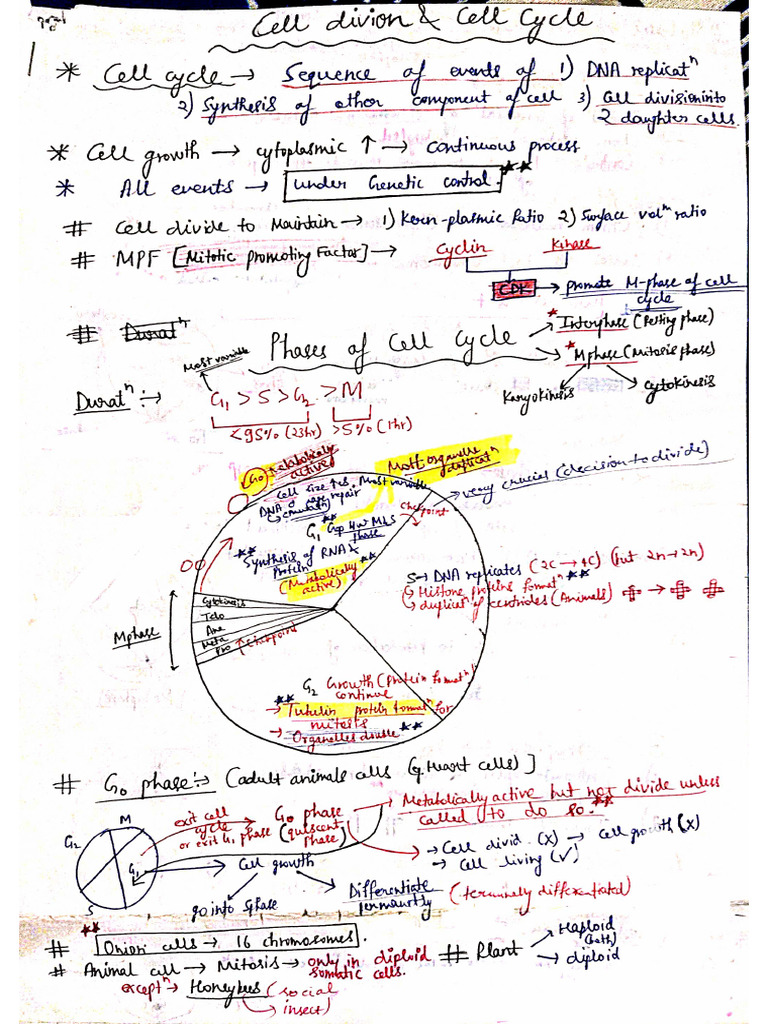 Cell divion & Cell Cycle
* Cell cycle → Sequence of events of 1) DNA replicatⁿ
2) Synthesis of other component of cell 3) Cell division into
2 daughter cells.
* Cell growth → cytoplasmic ↑ → continuous process
* All events → under Genetic control. **
# Cell divide to Maintain → 1) Kern-plasmic Ratio 2) Surface volᵐ ratio
# MPF [Mitotic Promoting Factor] → Cyclin Kinase
CDK → promote M-phase of cell
cycle
# Duratⁿ
Phases of Cell Cycle
* Interphase (Resting phase)
* Mphase (Mitosis phase)
Karyokinesis
cytokinesis
Most variable
Duratⁿ :→ G₁ > S > G₂ > M
<95% (23hr) >5% (1hr)
G₀ Metabolically
active
Most organelle
duplicatⁿ
Cell size ↑es Most variable
DNA repair
very crucies (decision to divide)
Chcpoint
G₁ Gap
phase
** Synthesis of RNA &
Protein
(Metabolically **
active)
S→ DNA replicates (2C → 4C) (but 2n→2n)
↳ Histone proteins formatⁿ **
↳ duplicatⁿ of centrioles (Animals)
Mphase
Cytokinesis
Telo
Ana
Meta
Pro
Chcpoint
G₂ Growth (Protein formatⁿ)
continue
** → Tubulin protein formatⁿ for
mitosis
→ Organelles double **
# G₀ phase :→ (adult animals cells (eg. Heart cells)]
M
G₂
G₁
S
exit cell
cycle
or exit G₁ phase
G₀ phase
(quiscent
phase)
→ Metabolically active but not divide unless
called to do so. **
→ Cell divid. (X) → cell growth (X)
→ Cell living (✓)
Cell growth
go into Sphase
Differentiate
permauntly
(terminely differentiated)
**
# Onion cells → 16 chromosomes.
# Animal cell → Mitosis → only in diploid
somatic cells.
# Plant
Haploid
(both)
diploid
exceptⁿ → Honeybees (social
insect)